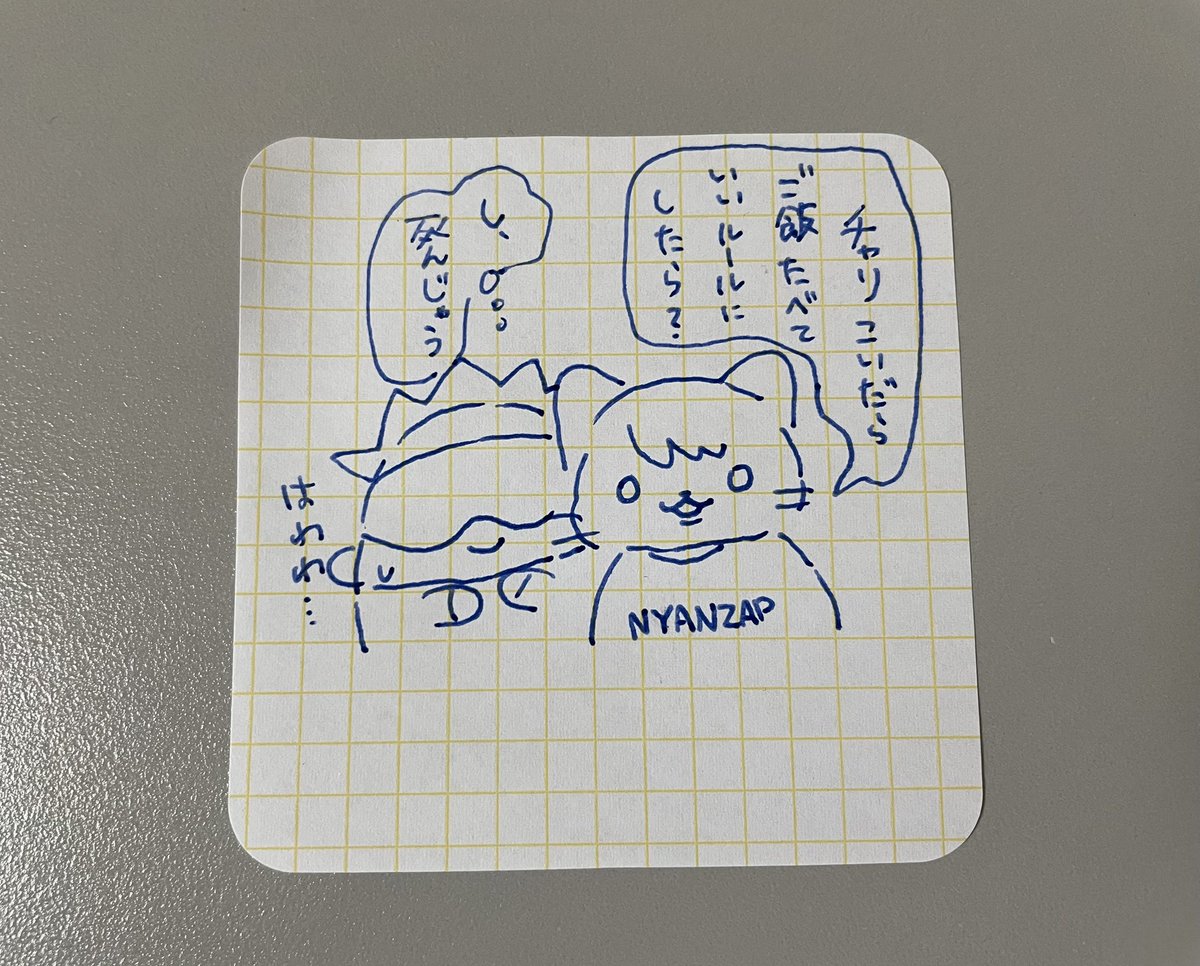 チャリこいだら
ご飯たべて
いいルールに
したら?
し、
死んじゃう
はわわ…
NYANZAP